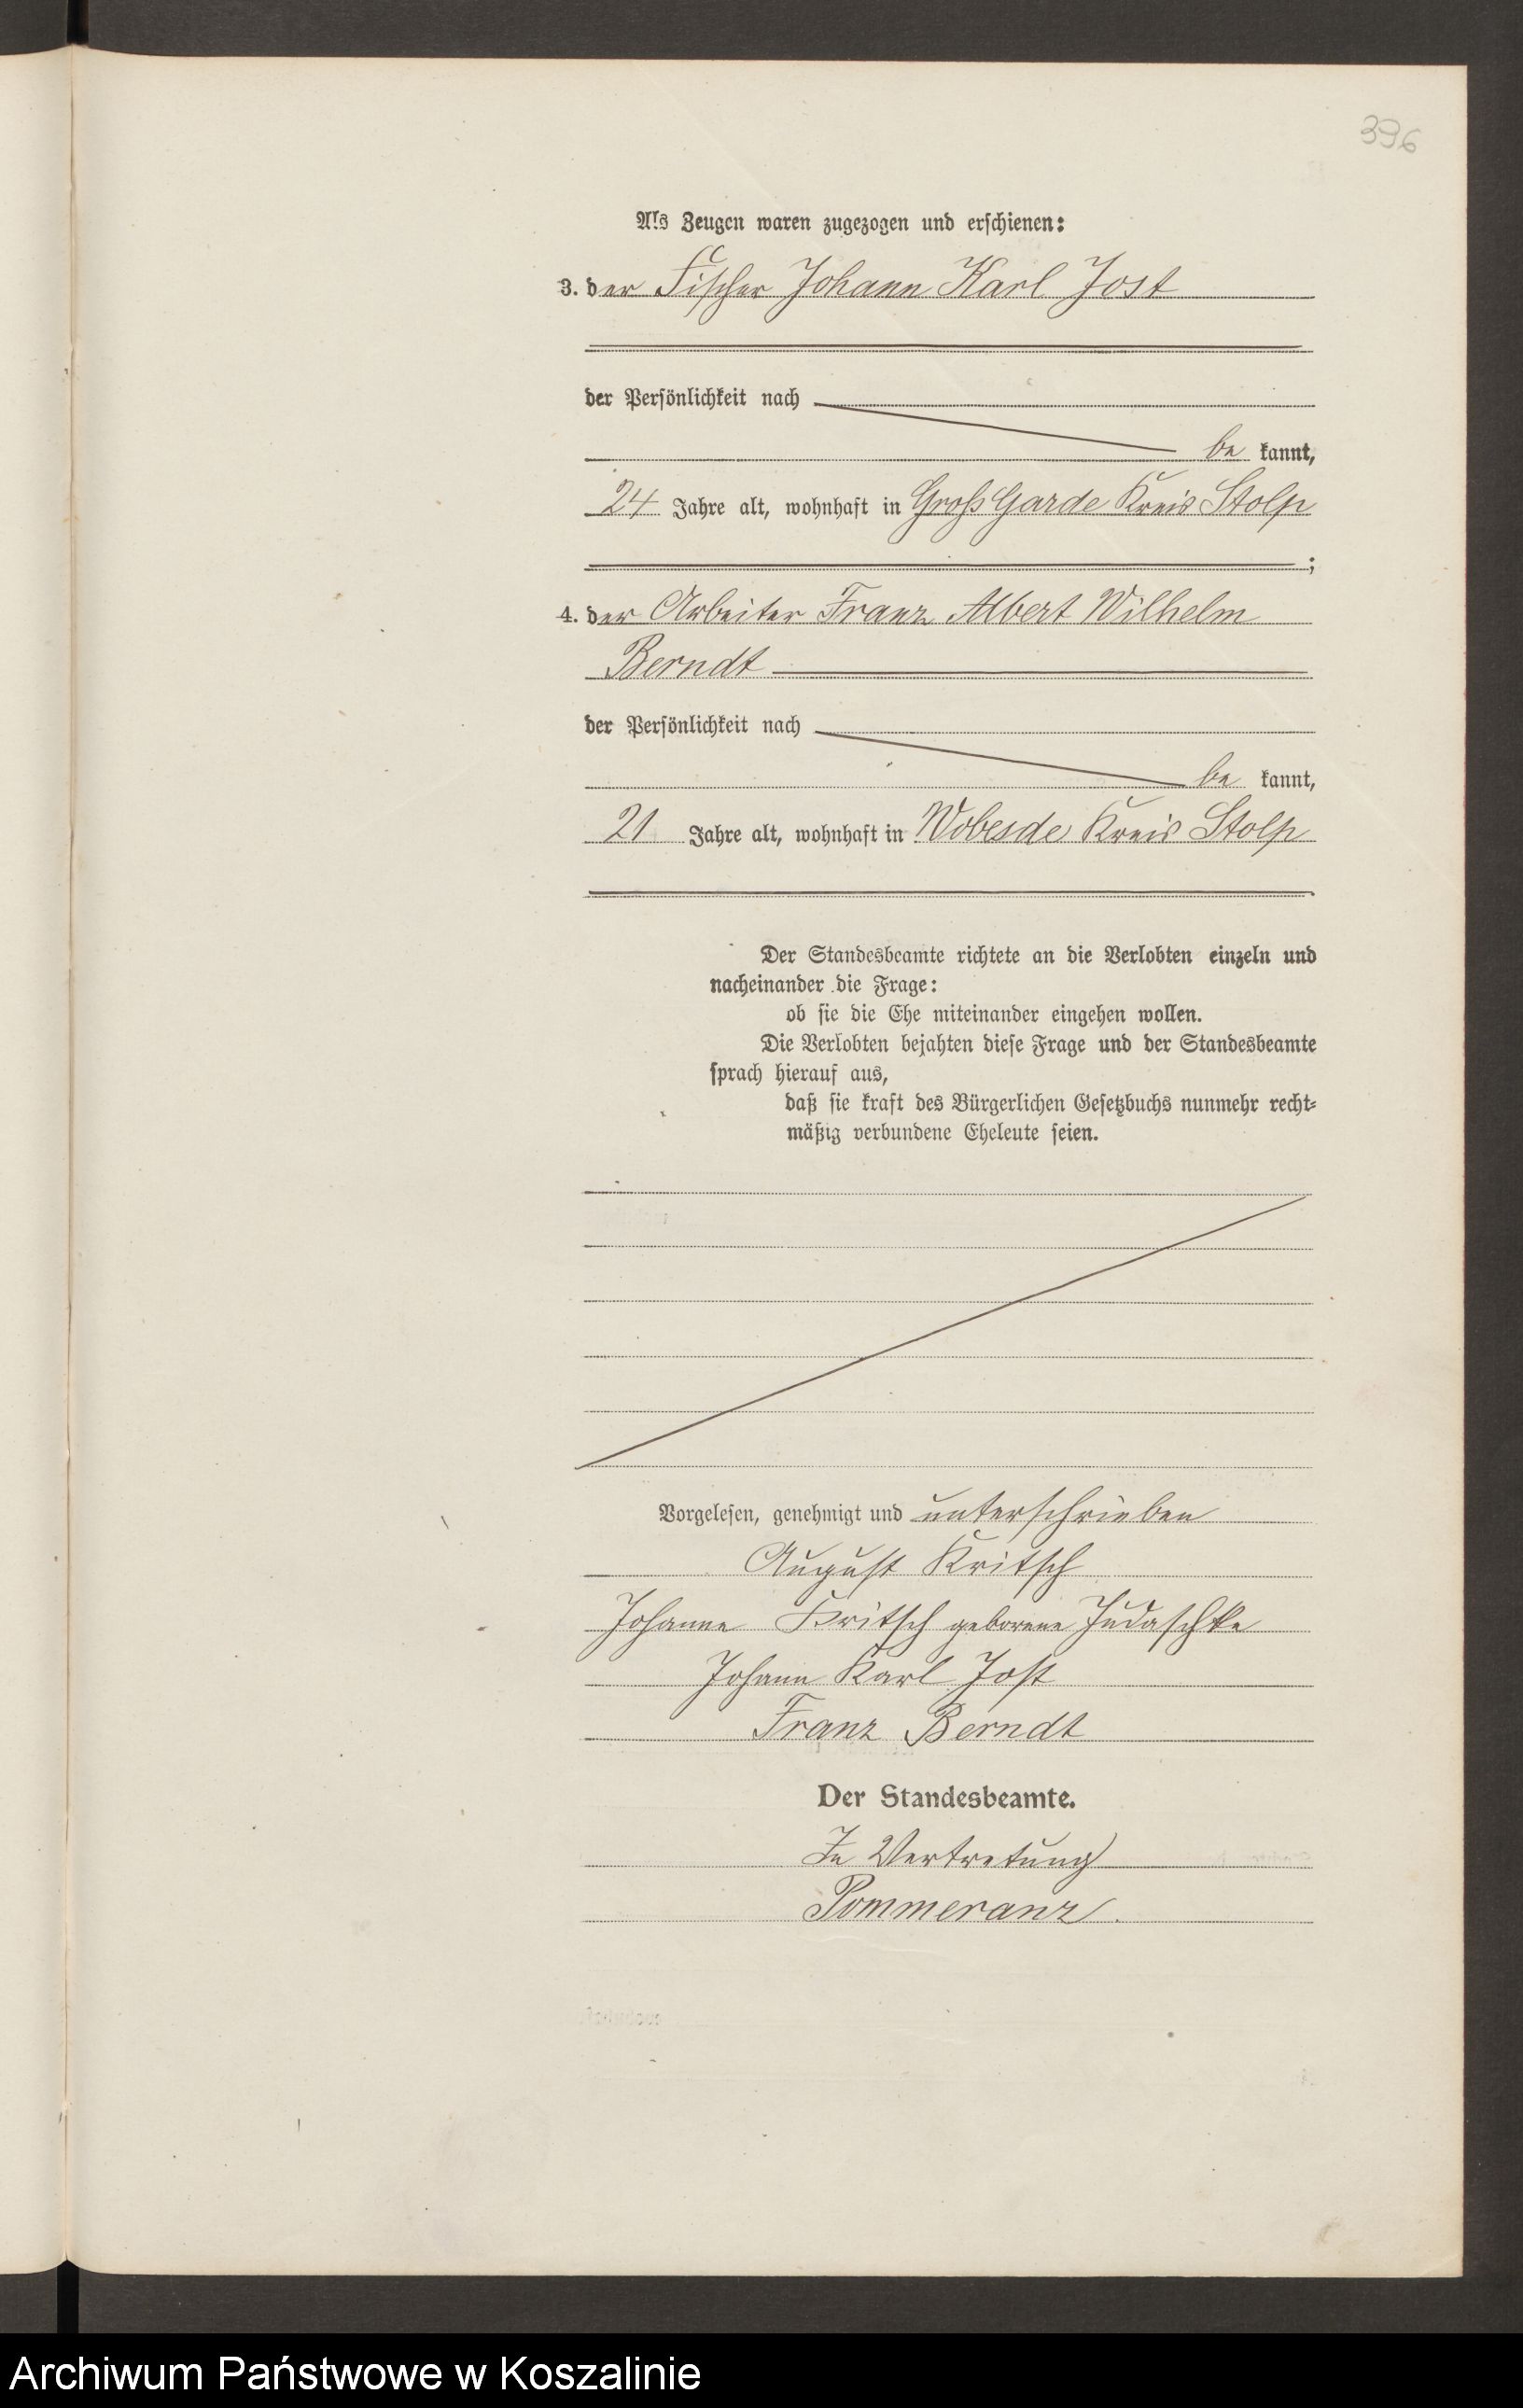 396
Als Zeugen waren zugezogen und erschienen:
3. der Fischer Johann Karl Jost
der Persönlichkeit nach
be kannt,
24 Jahre alt, wohnhaft in Groß Garde Kreis Stolp
;
4. der Arbeiter Franz Albert Wilhelm
Berndt
der Persönlichkeit nach
be kannt,
21 Jahre alt, wohnhaft in Wobesde Kreis Stolp
.
Der Standesbeamte richtete an die Verlobten einzeln und
nacheinander die Frage:
ob sie die Ehe miteinander eingehen wollen.
Die Verlobten bejahten diese Frage und der Standesbeamte
sprach hierauf aus,
daß sie kraft des Bürgerlichen Gesetzbuchs nunmehr recht-
mäßig verbundene Eheleute seien.
Vorgelesen, genehmigt und unterschrieben
August Kritsch
Johanne Kritsch geborene Judaschke
Johann Karl Jost
Franz Berndt
Der Standesbeamte.
In Vertretung
Pommeranz.
Archiwum Państwowe w Koszalinie